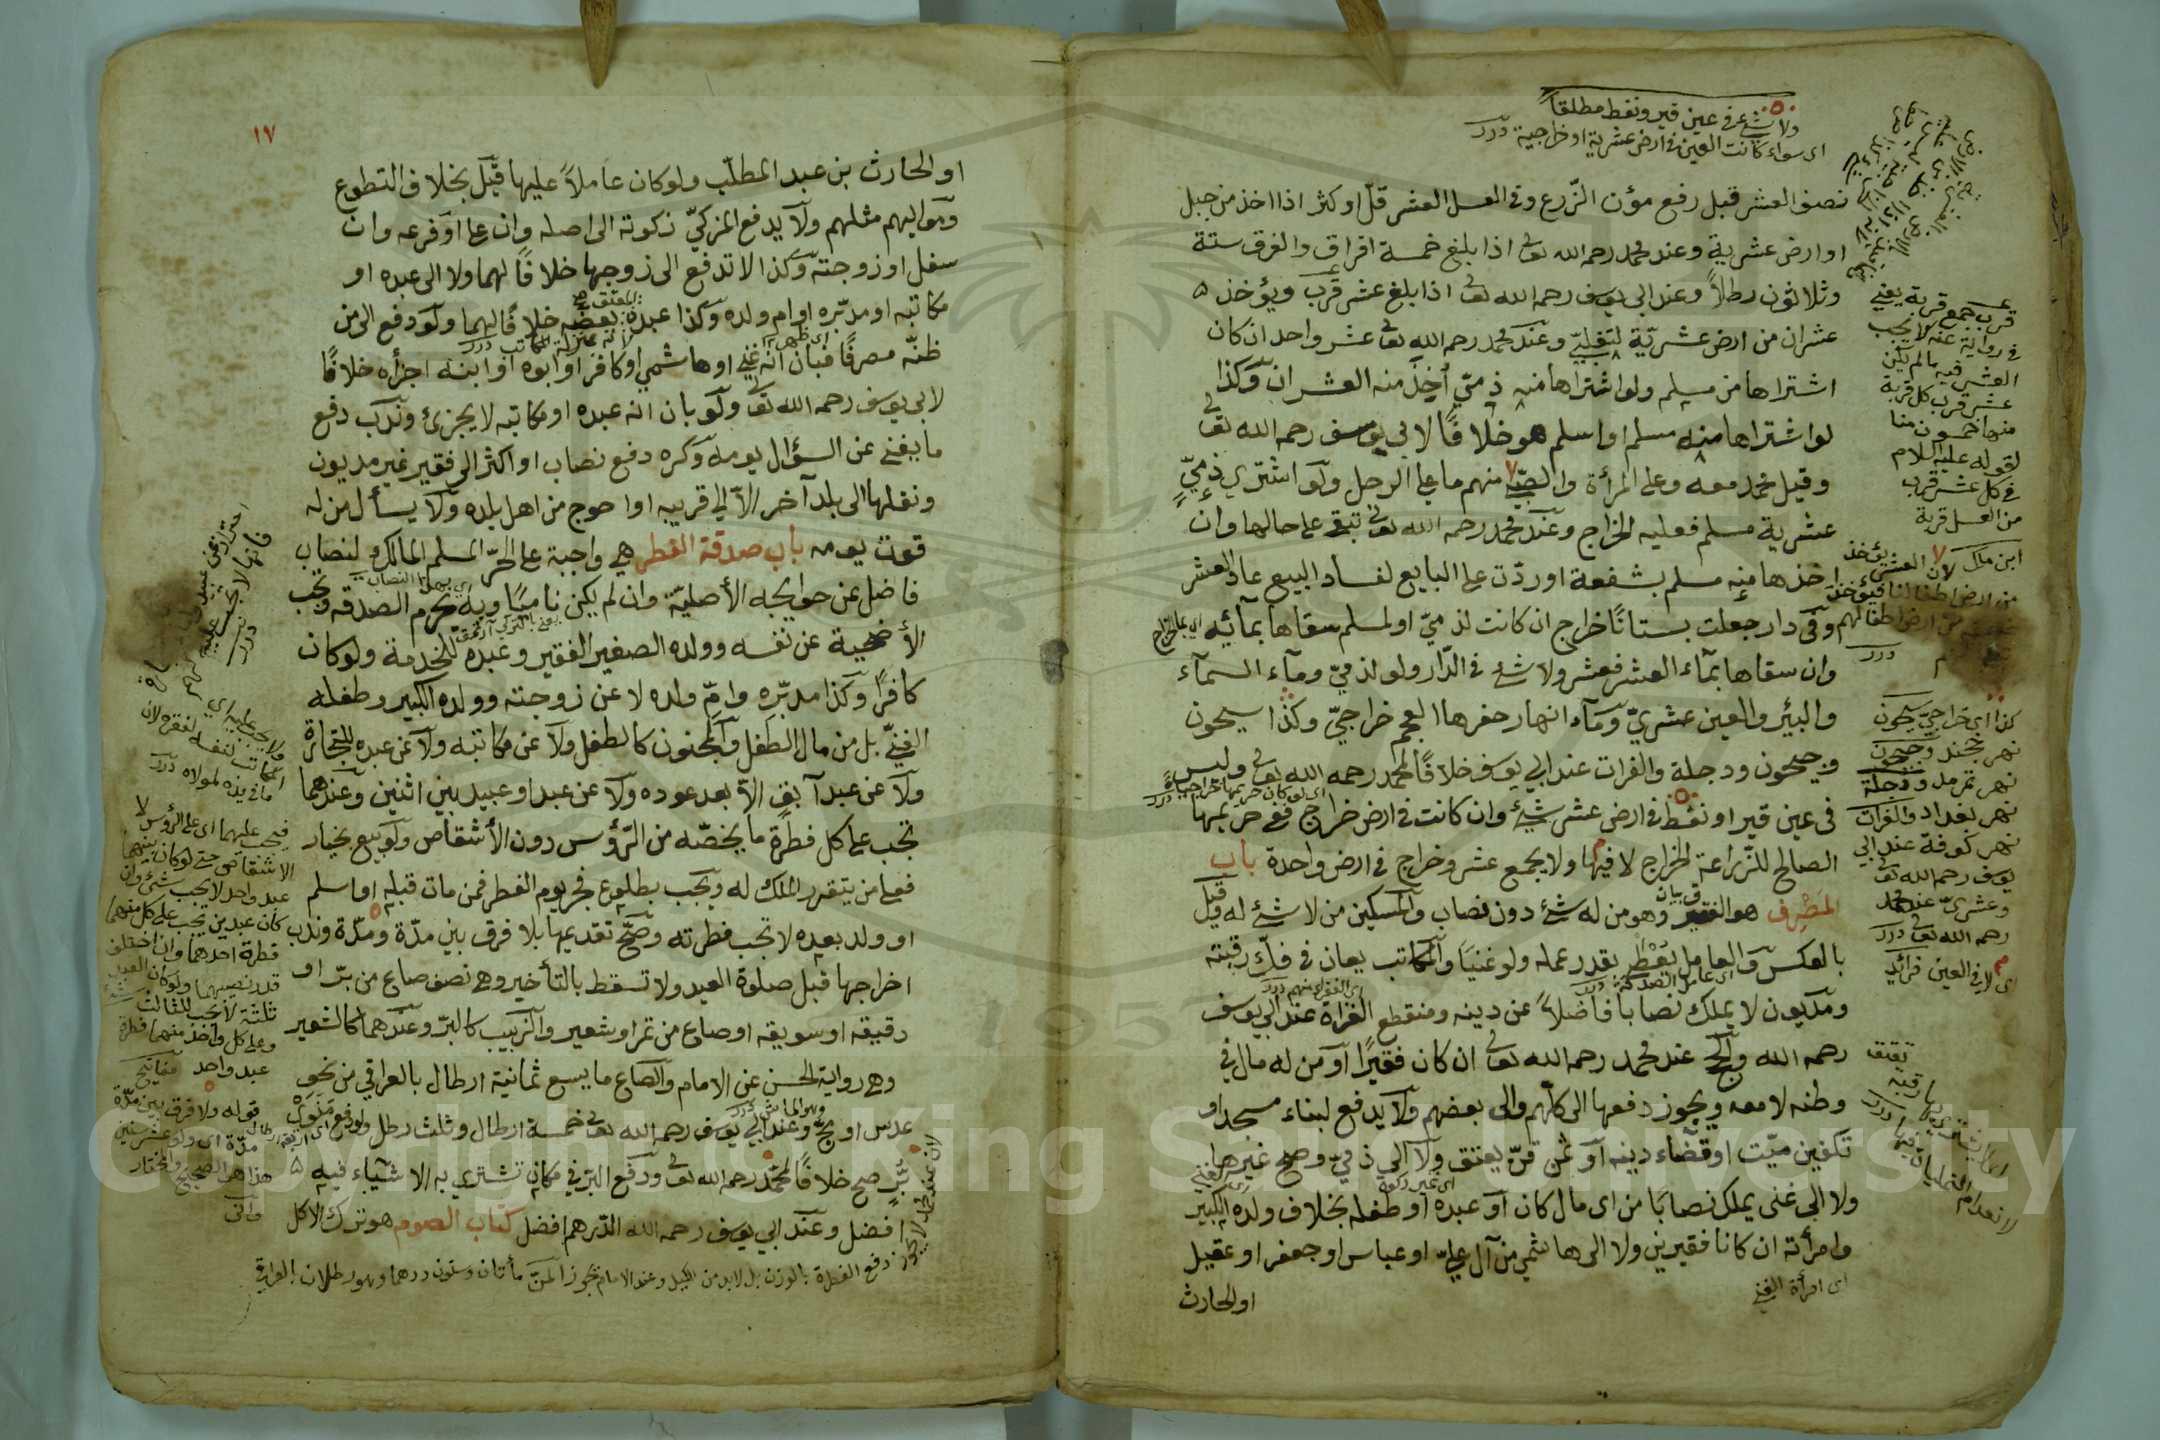 ولا شئ في عين قير ونفط مطلقا
اى سواء كانت العين فى ارض عشرية او خراجية درر
نصف العشر قبل رفع مؤن الزّرع وفى العسل العشر قلّ او كثر اذا اخذ من جبل
او ارض عشرية وعند محمد رحمه الله تعالى اذا بلغ خمسة افراق والفرق ستة
وثلاثون رطلاً وعند ابى يوسف رحمه الله تعالى اذا بلغ عشر قرب ويؤخذ
عشران من ارض عشريّة لتغلبيّ وعند محمد رحمه الله تعالى عشر واحد ان كان
اشتراها من مسلم ولو اشتراها منه ذميّ أخذ منه العشران وكذا
لو اشتراها منه مسلم او اسلم هو خلافًا لابي يوسف رحمه الله تعالى
وقيل محمد معه وعلى المرأة والصبيّ منهم ما على الرجل ولو اشترى ذميّ
عشرية مسلم فعليه الخراج وعند محمد رحمه الله تعالى تبقى على حالها وان
اخذها منه مسلم بشفعة او ردّت على البايع لفساد البيع عاد العشر
وفى دار جعلت بستانًا خراج ان كانت لذميّ او لمسلم سقاها بمآئه
وان سقاها بمآء العشر فعشر ولا شئ فى الدّار ولو لذميّ ومآء السمآء
والبئر والعين عشريّ ومآء انهار حفرها العجم خراجيّ وكذا سيحون
وجيحون ودجلة والفرات عند ابى يوسف خلافًا لمحمد رحمه الله تعالى وليس
فى عين قير او نفط فى ارض عشر شئ وان كانت فى ارض خراج ففى حريمها
الصالح للزّراعة الخراج لا فيها ولا يجمع عشر وخراج فى ارض واحدة باب
المصرف هو الفقير وهو من له شئ دون نصاب والمسكين من لا شئ له وقيل
بالعكس والعامل يعطى بقدر عمله ولو غنيًا والمكاتب يعان فى فكّ رقبته
ومديون لا يملك نصابا فاضلاً عن دينه ومنقطع الغزاة عند ابى يوسف
رحمه الله والحج عند محمد رحمه الله تعالى ان كان فقيرًا او من له مال فى
وطنه لا معه ويجوز دفعها الى كلّهم والى بعضهم ولا يدفع لبناء مسجد او
تكفين ميّت او قضآء دينه او ثمن قنّ يعتق ولا الى ذميّ وصح غيرها
ولا الى غنى يملك نصابًا من اى مال كان او عبده او طفله بخلاف ولده الكبير
وامرأته ان كانا فقيرين ولا الى هاشمى من آل عليّ او عباس او جعفر او عقيل
اى امرأة الغنى
او الحارث
قرب جمع قربة يعنى
فى رواية عنه لا يجب
العشر فيه مالم يكن
عشر قرب كل قربة
منها خمسون منا
لقوله عليه السلام
فى كل عشر قرب
من العسل قربة
ابن ملك
لان العشر يؤخذ
من ارض اطفالنا فيؤخذ
درر
كذا اى خراجيّ سيحون
نهر خجند وجيحون
نهر ترمذ ودجلة
نهر بغداد والفرات
نهر كوفة عند ابى
يوسف رحمه الله تعالى
وعشريّ عند محمد
رحمه الله تعالى درر
اى لا فى العين فرائد
١٧
او الحارث بن عبد المطلّب ولو كان عاملاً عليها قيل بخلاف التطوع
ومواليهم مثلهم ولا يدفع المزكيّ زكوته الى اصله وان علا او فرعه وان
سفل او زوجته وكذا لا تدفع الى زوجها خلافًا لهما ولا الى عبده او
مكاتبه او مدبّره او ام ولده وكذا عبده المعتق بعضه خلافًا لهما ولو دفع الى من
ظنّه مصرفًا فبان انه غني او هاشمي او كافر او ابوه او ابنه اجزأه خلافًا
لابى يوسف رحمه الله تعالى ولو بان انه عبده او مكاتبه لا يجزئ وندب دفع
ما يغنى عن السؤال يومه وكره دفع نصاب او اكثر الى فقير غير مديون
ونقلها الى بلد آخر الاّ الى قريبه او احوج من اهل بلده ولا يسأل من له
قوت يومه باب صدقة الفطر هي واجبة على الحرّ المسلم المالك لنصاب
فاضل عن حوايجه الأصليّة وان لم يكن ناميًا وبه تحرم الصدقه وتجب
الأضحية عن نفسه وولده الصغير الفقير وعبده للخدمة ولو كان
كافرًا وكذا مدبّره وامّ ولده لا عن زوجته وولده الكبير وطفله
الغنيّ بل من مال الطفل والمجنون كالطفل ولا عن مكاتبه ولا عن عبده للتجارة
ولا عن عبد آبق الاّ بعد عوده ولا عن عبد او عبيد بين اثنين وعندهما
تجب على كل فطرة ما يخصّه من الرّؤس دون الأشقاص ولو بيع بخيار
فعلى من يتقرر الملك له وتجب بطلوع فجر يوم الفطر فمن مات قبله او اسلم
او ولد بعده لا تجب فطرته وصحّ تقديمها بلا فرق بين مدّة ومدّة وندب
اخراجها قبل صلوة العيد ولا تسقط بالتأخير وهى نصف صاع من برّ او
دقيقه او سويقه او صاع من تمر او شعير والزبيب كالبرّ وعندهما كالشعير
وهى رواية الحسن عن الامام والصاع ما يسع ثمانية ارطال بالعراقي من نحو
عدس او مجّ وعند ابى يوسف رحمه الله تعالى خمسة ارطال وثلث رطل ولو دفع منوي
برّ صح خلافًا لمحمّد رحمه الله تعالى ودفع البرّ في مكان تشترى به الاشيآء فيه
افضل وعند ابى يوسف رحمه الله الدّرهم افضل كتاب الصوم هو ترك الاكل
دفع الفطرة بالوزن بل لابد من الكيل وعند الامام يجوز المنّ مأتان وستون درهما وهو رطلان
ولا يجب عليه اى
المكاتب لنفسه لفقره لان
ما فى يده لمولاه درر
فيجب عليهما اى على الرؤس لا
الاشقاص حتى لو كان بينهما
عبد واحد لا يجب شئ وان
كان عبدين يجب على كل منهما
فطرة احدهما وان اختلف
قدر نصيبهما ولو كان العبيد
ثلثة لا يجب للثالث
وعلى كل واحد منهما فطرة
عبد واحد
قوله ولا فرق بين مدّة
ومدّة اى ولو عشر سنين
هذا هو الصحيح والمختار
Copyright © King Saud University
1957